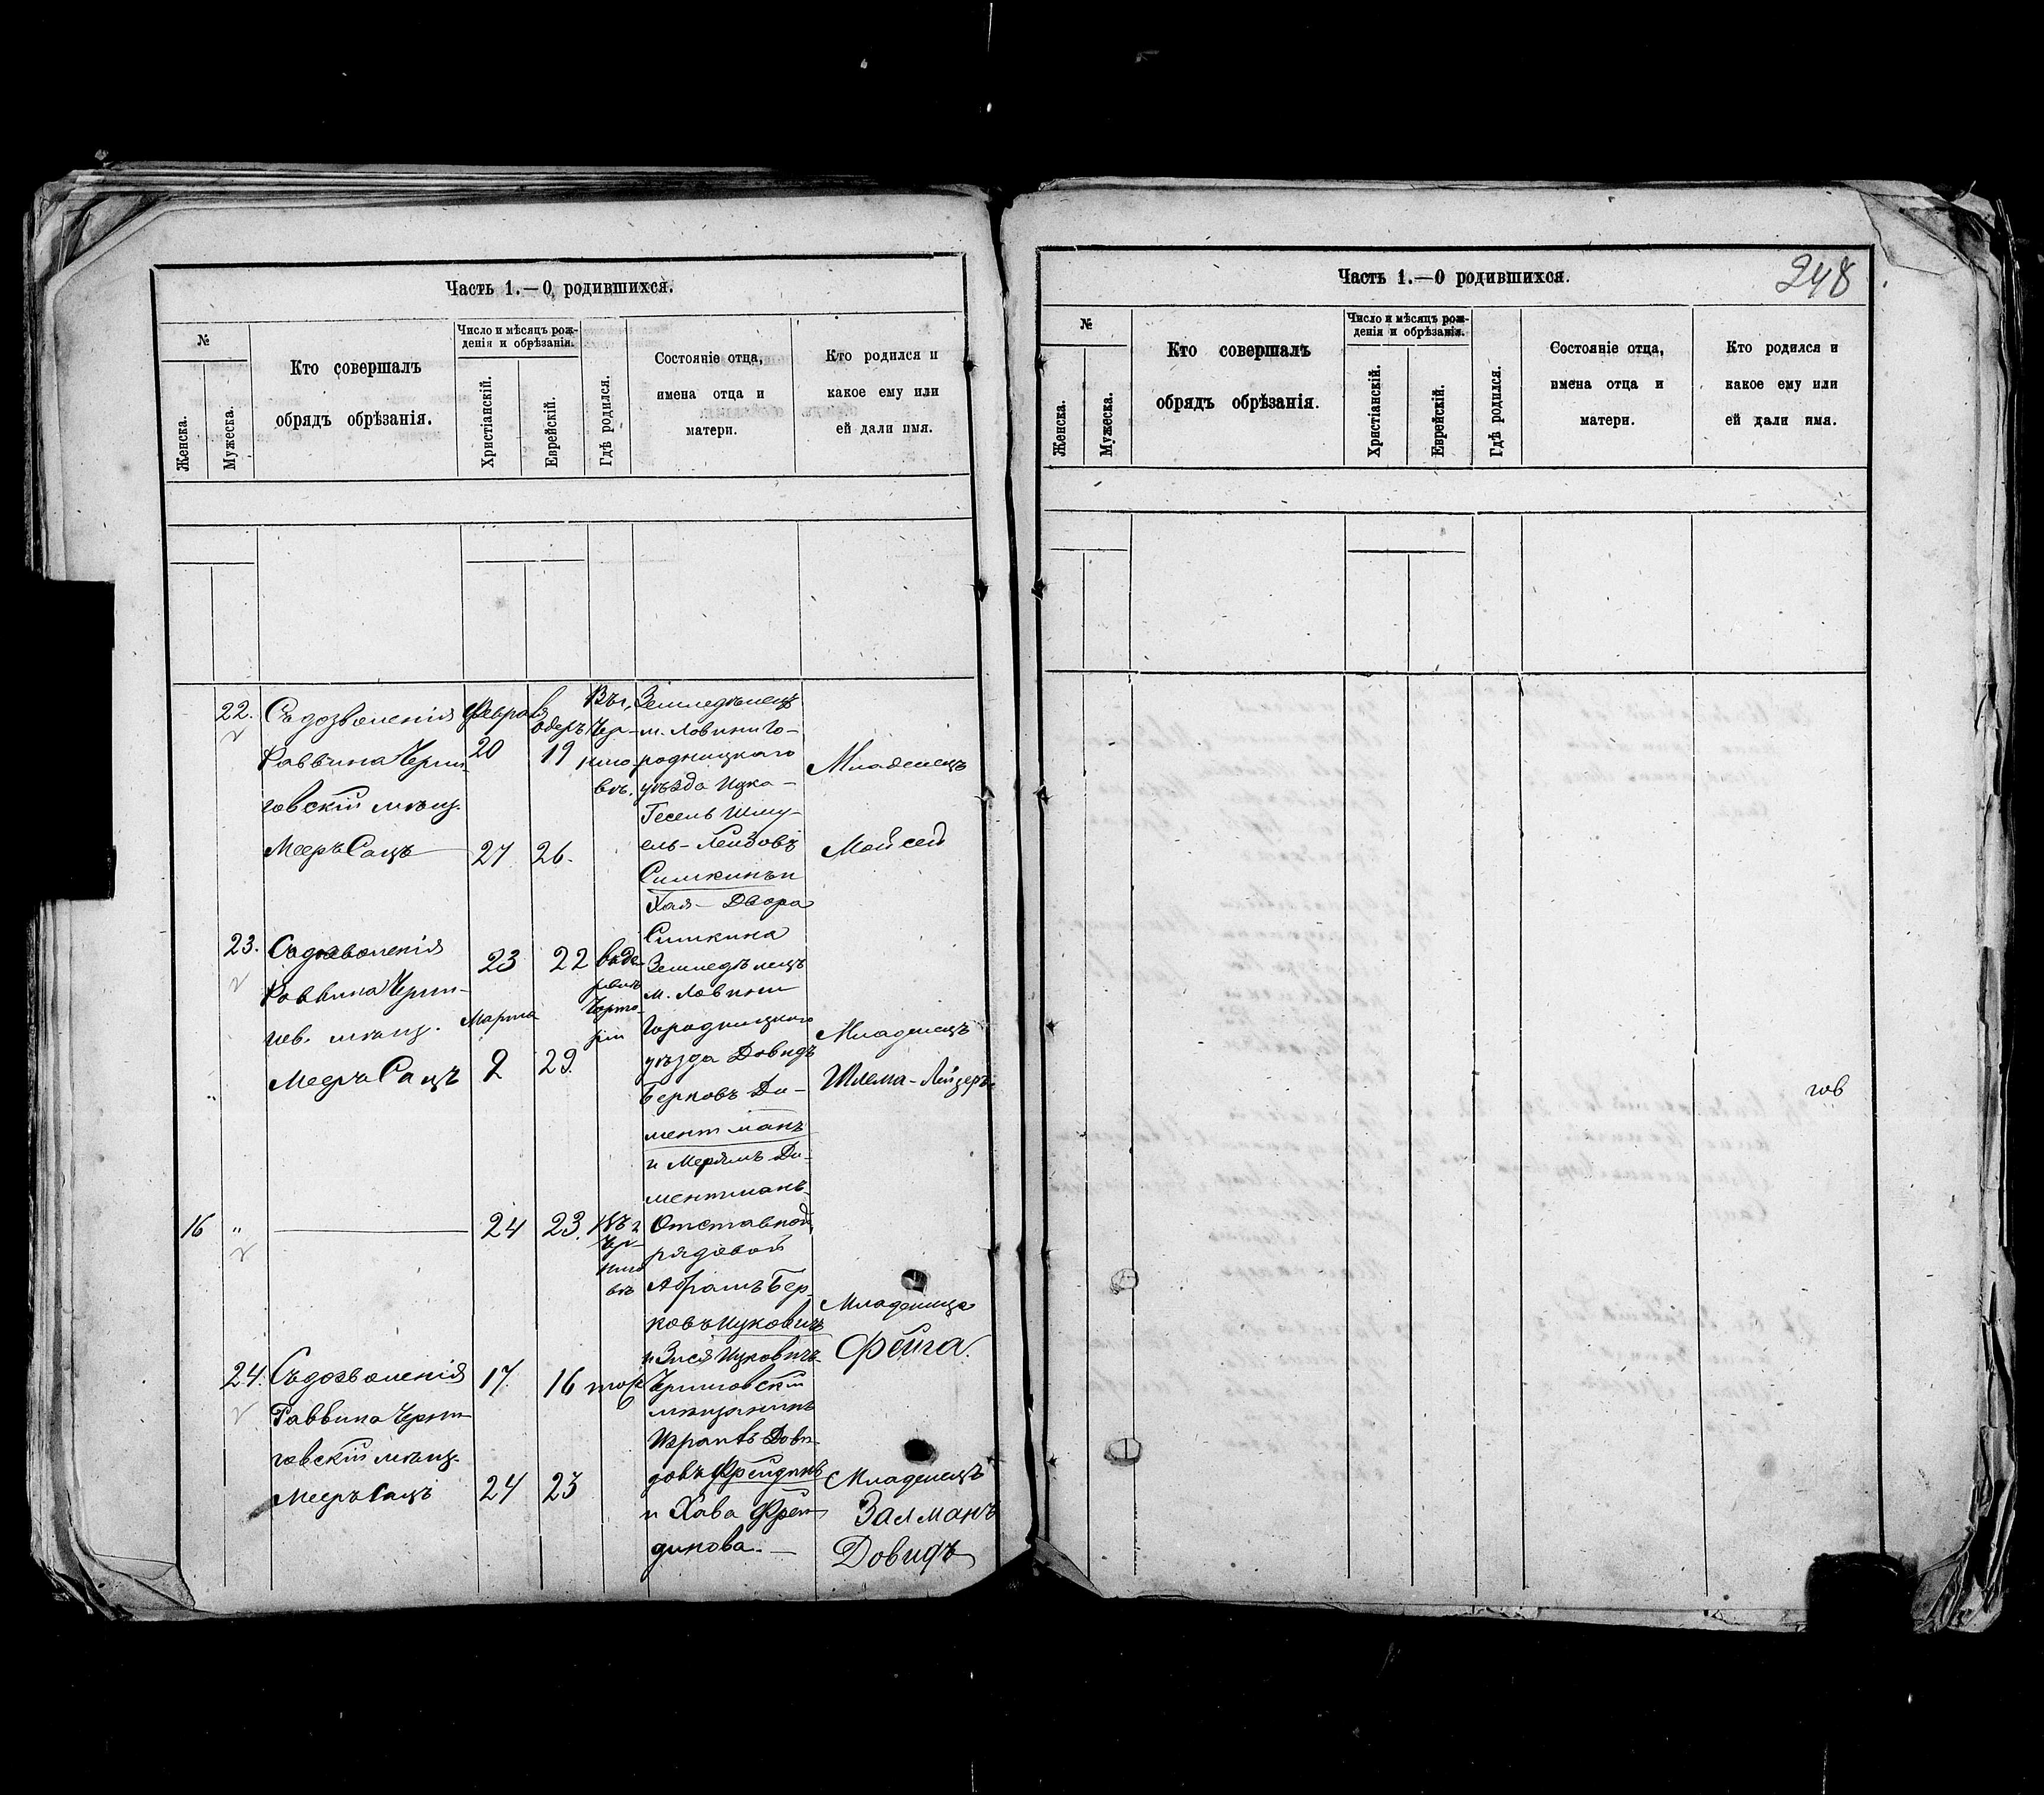 Часть 1.—О родившихся.
№
Женска.
Мужеска.
Кто совершалъ
обрядъ обрѣзанія.
Число и мѣсяцъ рож-
денія и обрѣзанія.
Христіанскій.
Еврейскій.
Гдѣ родился.
Состояніе отца,
имена отца и
матери.
Кто родился и
какое ему или
ей дали имя.
22.
Съдозволенія
Раввина Черни-
говскій мѣщ.
Мееръ Сацъ
Февраля
20
27
Адеръ
19
26.
Въ г.
Чер-
ниго
вѣ.
Земледѣлецъ
м. Ловини Го-
родницкаго
уѣзда Ицка-
Гесель Шму-
ель-Лейбовъ
Симкинъ и
Хая-Двора
Симкина
Младенецъ
Мойсей
23.
Съдозволенія
Раввина Черни-
гов. мѣщ.
Мееръ Сацъ
23
Марта
2
22
29.
въ де
ревнѣ
Чорто
рiи
Земледѣлецъ
м. Ловини
Городницкаго
уѣзда Довидъ
Берковъ Ди-
ментманъ
и Мерямъ Ди-
ментманъ
Младенецъ
Шлема-Лейзеръ.
16
"
24
23.
Въ г
Чер-
ниго
вѣ
Отставной
рядовой
Абрамъ Бер-
ковъ Ицковичъ
и Зися Ицковичъ
Младеница
Фейга.
24.
Съдозволенія
Раввина Черни-
говскій мѣщ.
Мееръ Сацъ
17.
24
16
23
тож
Черниговскій
мѣщанинъ
Довы-
довъ Фрейдинъ
и Хава Фрей-
динова.—
Младенецъ
Залманъ
Довидъ
Часть 1.—О родившихся.
248
№
Женска.
Мужеска.
Кто совершалъ
обрядъ обрѣзанія.
Число и мѣсяцъ рож-
денія и обрѣзанія.
Христіанскій.
Еврейскій.
Гдѣ родился.
Состояніе отца,
имена отца и
матери.
Кто родился и
какое ему или
ей дали имя.
гов